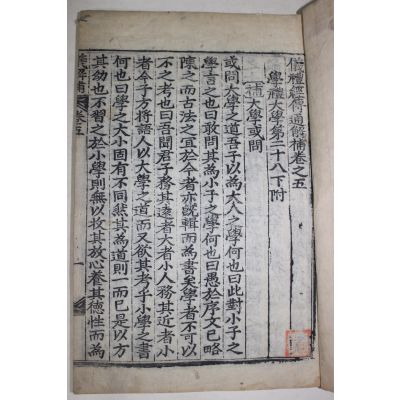 儀禮經傳通解補卷之五
學禮大學第二十八下附
補大學或問
或問大學之道吾子以為大人之學何也曰此對小子之
學言之也曰敢問其為小子之學何也曰愚於序文已略
陳之而古法之宜於今者亦旣輯而為書矣學者不可以
不之考也曰吾聞君子務其遠者大者小人務其近者小
者今子方將語人以大學之道而又欲其考乎小學之書
何也曰學之大小固有不同然其為道則一而已是以方
其幼也不習之於小學則無以收其放心養其德性而為
解補 卷五